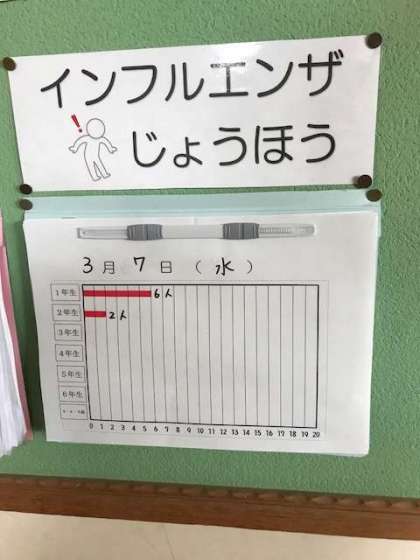 インフルエンザ
!
じょうほう
3月 7日 ( 水 )
1年生 6人
2年生 2人
3年生
4年生
5年生
6年生
0 1 2 3 4 5 6 7 8 9 10 11 12 13 14 15 16 17 18 19 20